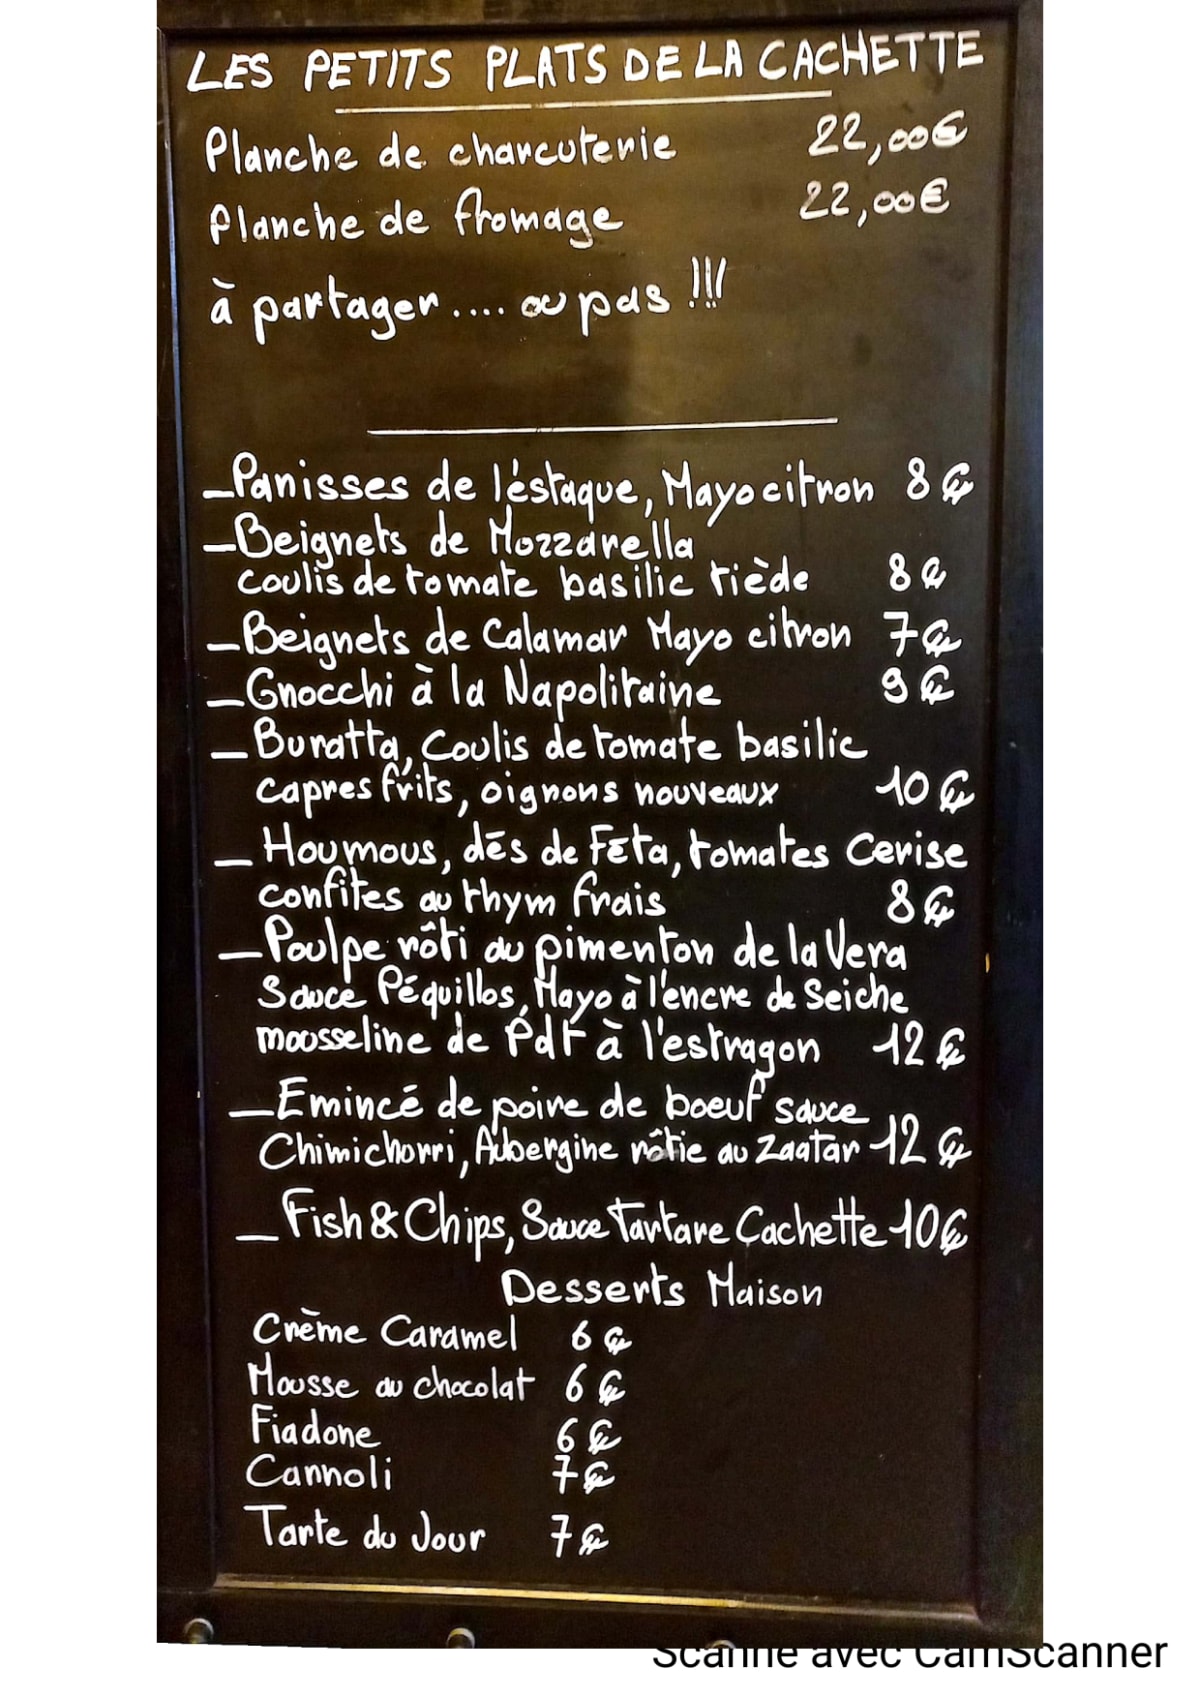 LES PETITS PLATS DE LA CACHETTE
Planche de charcuterie 22,00€
Planche de fromage 22,00€
à partager.... ou pas !!!
_Panisses de l'éstaque, Mayo citron 8€
_Beignets de Mozzarella
coulis de tomate basilic tiède 8€
_Beignets de Calamar Mayo citron 7€
_Gnocchi à la Napolitaine 9€
_Buratta, Coulis de tomate basilic
capres frits, oignons nouveaux 10€
_Houmous, dés de Féta, tomates Cerise
confites au thym frais 8€
_Poulpe rôti au pimenton de la Vera
Sauce Péquillos, Mayo à l'encre de Seiche
mousseline de Pdt à l'estragon 12€
_Emincé de poire de boeuf sauce
Chimichorri, Aubergine rôtie au Zaatar 12€
_Fish & Chips, Sauce Tartare Cachette 10€
Desserts Maison
Crème Caramel 6€
Mousse au chocolat 6€
Fiadone 6€
Cannoli 7€
Tarte du Jour 7€
Scanné avec CamScanner